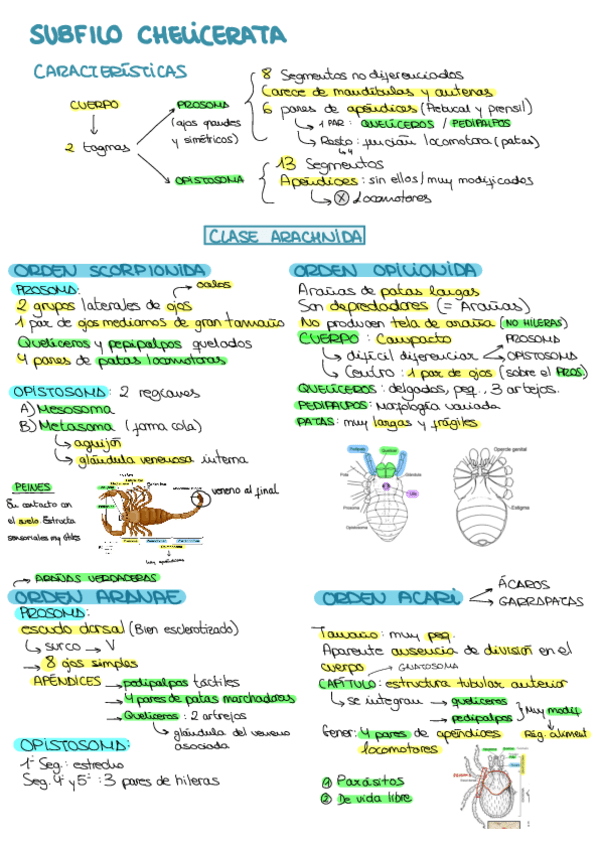 SUBFILO CHELICERATA
CARACTERÍSTICAS
CUERPO
2 tagmas
PROSOMA
(ojos grandes
y simétricos)
8 Segmentos no diferenciados
Carece de mandíbulas y antenas
6 pares de apéndices (Prebucal y prensil)
1 PAR: QUELÍCEROS / PEDIPALPOS
Resto: función locomotora (patas)
OPISTOSOMA
13 Segmentos
Apéndices: sin ellos/muy modificados
Locomotores
CLASE ARACHNIDA
ORDEN SCORPIONIDA
PROSOMA:
ocelos
2 grupos laterales de ojos
1 par de ojos medianos de gran tamaño
Quelíceros y pepipalpos quelados
4 pares de patas locomotoras
OPISTOSOMA: 2 regiones
A) Mesosoma
B) Metasoma (forma cola)
aguijón
glándula venenosa interna
PEINES
En contacto con
el suelo. Estructa
sensoriales my útiles
veneno al final
ORDEN OPILIONIDA
Arañas de patas largas
Son depredadores (= Arañas)
No producen tela de araña (NO HILERAS)
CUERPO: Compacto
difícil diferenciar
PROSOMA
OPISTOSOMA
Centro: 1 par de ojos (sobre el PROS)
QUELÍCEROS: delgados, peq., 3 artejos.
PEDIPALPOS: Morfología variada
PATAS: muy largas y frágiles
Opérculo genital
Estigma
Prosoma
Opistosoma
ARAÑAS VERDADERAS
ORDEN ARANAE
PROSOMA:
escudo dorsal (Bien esclerotizado)
surco → V
8 ojos simples
APÉNDICES → pedipalpos táctiles
4 pares de patas marchadoras
Quelíceros: 2 artejos
glándula del veneno
asociada
OPISTOSOMA:
1er Seg.: estrecho
Seg. 4º y 5º: 3 pares de hileras
ORDEN ACARI
ÁCAROS
GARRAPATAS
Tamaño: muy peq.
Aparente ausencia de división en el
cuerpo
GNATOSOMA
CAPÍTULO: estructura tubular anterior
se integran → quelíceros
pedipalpos
Muy modif.
Rég. aliment
Gener. 4 pares de apéndices
locomotores
1 Parásitos
2 De vida libre